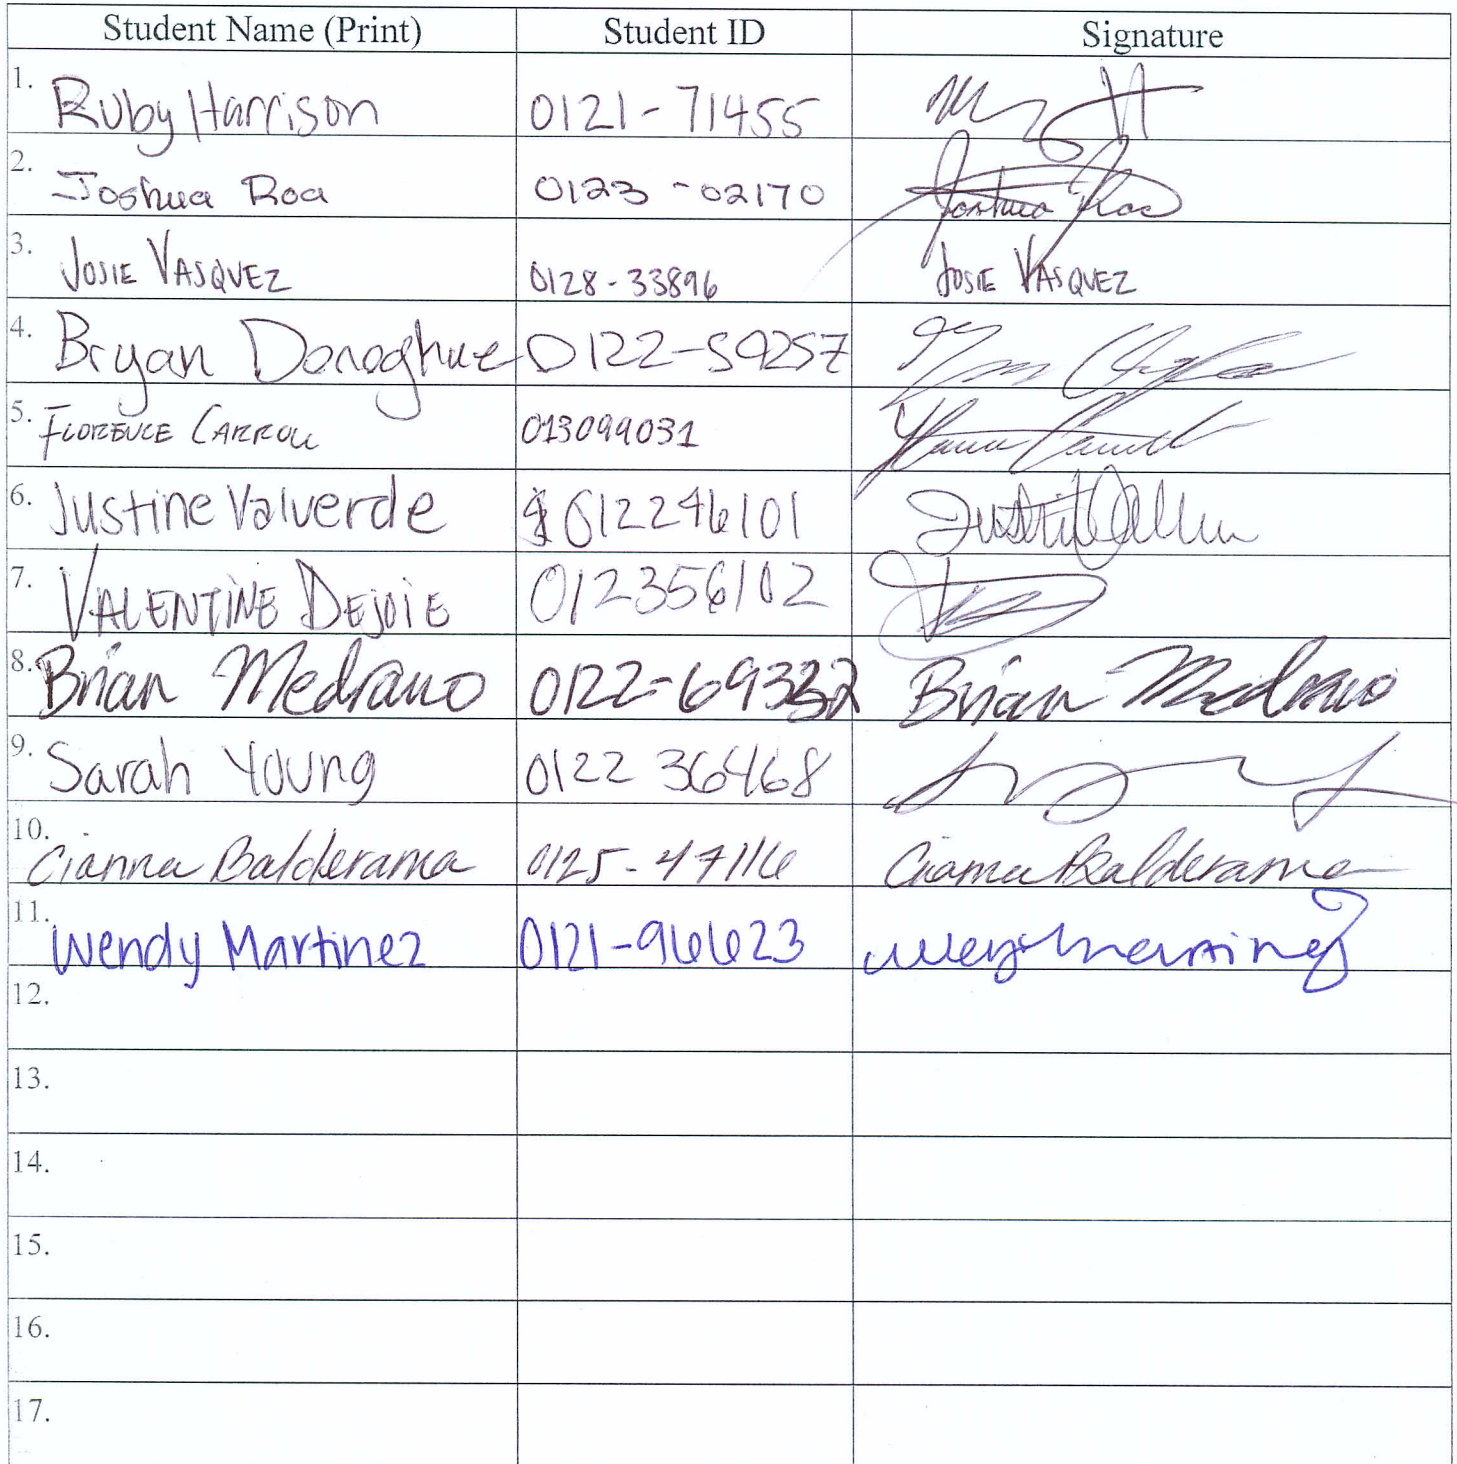 Student Name (Print) Student ID Signature
1. Ruby Harrison 0121-71455
2. Joshua Roa 0123-02170 Joshua Roa
3. JOSIE VASQUEZ 0128-33896 JOSIE VASQUEZ
4. Bryan Donoghue 0122-59257
5. FLORENCE CARROLL 013099031
6. Justine Valverde 012246101
7. VALENTINE DEJOIE 012356102
8. Brian Medrano 0122-69332 Brian Medrano
9. Sarah Young 0122 36468
10. Cianna Balderama 0125-47116 Cianna Balderama
11. Wendy Martinez 0121-96623
12.
13.
14.
15.
16.
17.